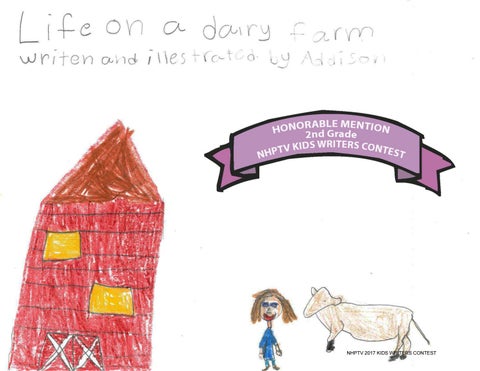 Life on a dairy farm
writen and illestrated by Addison
HONORABLE MENTION
2nd Grade
NHPTV KIDS WRITERS CONTEST
NHPTV 2017 KIDS WRITERS CONTEST